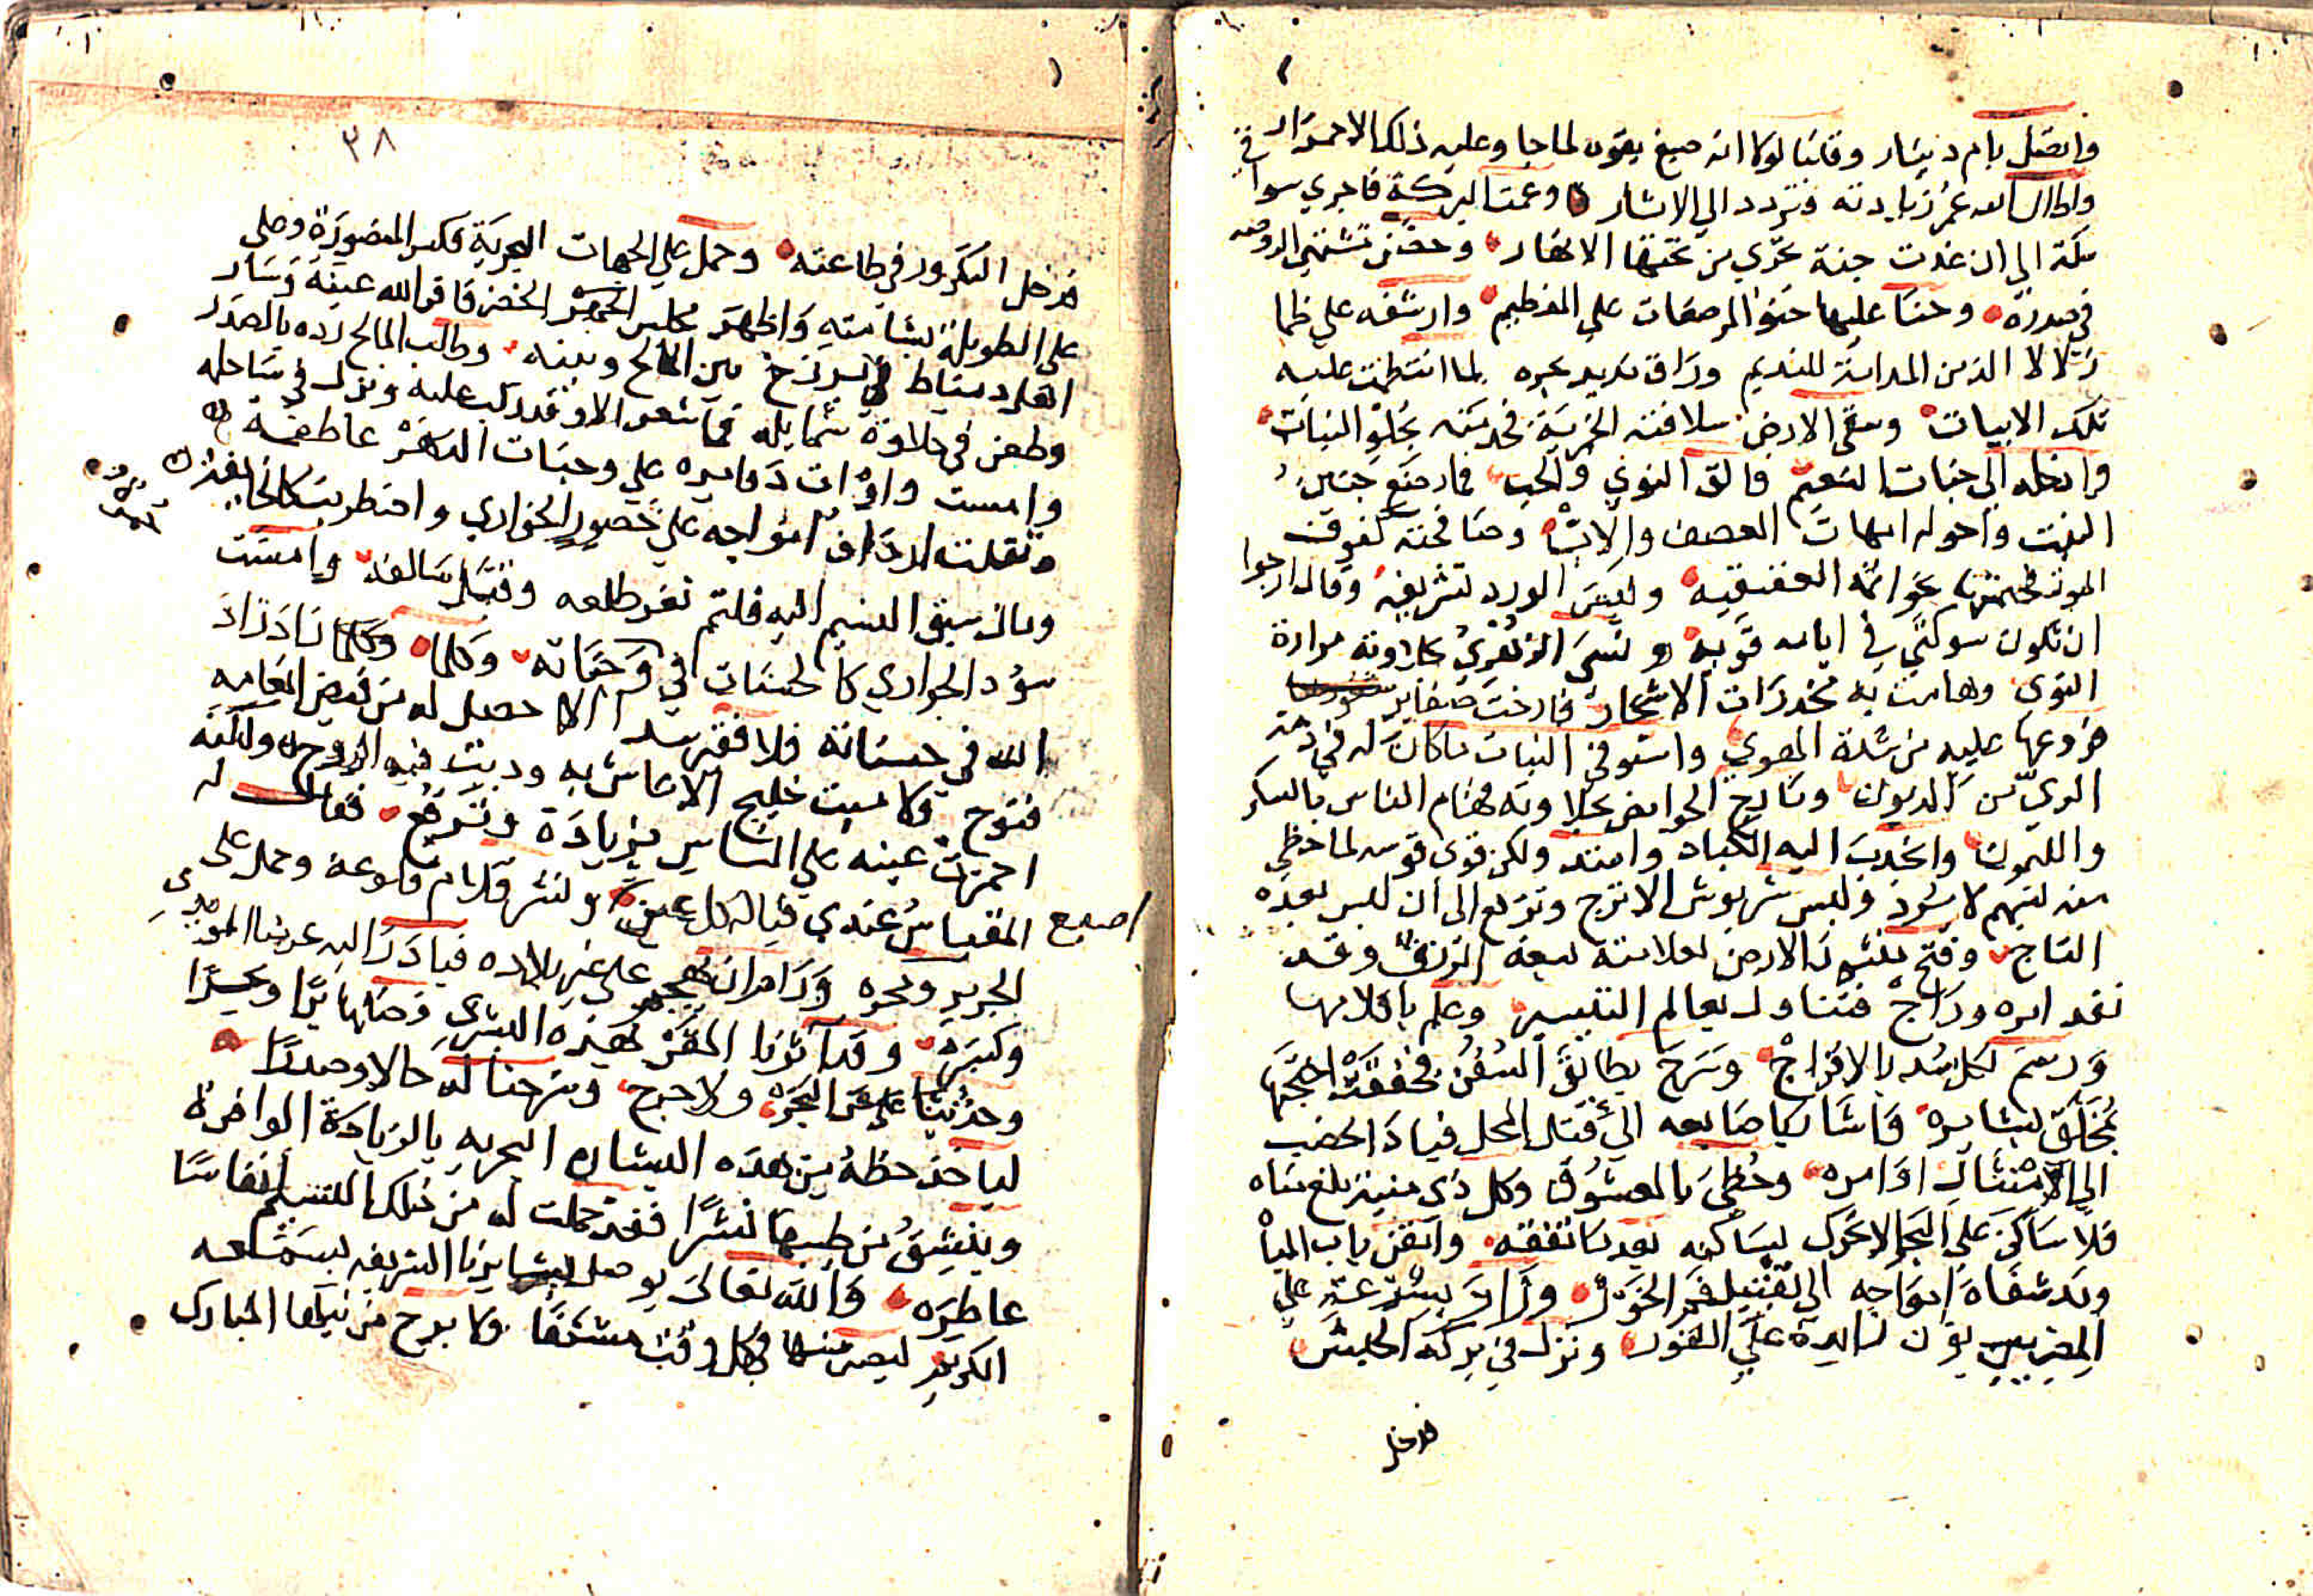 واتصل بام دينار وقلنا لولا انه صبغ بقوته لما جا وعليه ذلك الاحمرار
واطال الله عمر زيادته فتردد الي الاثار وعمت البركة فاجري سواقي
مكة الي ان غدت جنة تجري من تحتها الانهار وحضن مشتهي الروضة
في صدره وحنا عليها حنو المرضعات علي الفطيم وارشفه علي ظما
زلالا الذ من المدامة للنديم وراق مديد بحره لما انتظمت عليه
تلك الابيات وسقي الارض سلافته الخمرية فخدمته بحلو النبات
وادخله الي جنات النعيم فالق النوي والحب فارضع جنين
النبت واحوله امهات العصف والاب وصافحته كفوف
الموز فختمها بخواتمه العقيقيه ولبس الورد تشريفه وقال ارجوا
ان تكون شوكتي في ايامه قويه ونسي الزهر بحلاوته مرارة
النوي وهامت به مخدرات الاشجار فارخت ضفاير
فروعها عليه من شدة الهوي واستوفي النبات ما كان له في ذمة
الري من الديون ومازج الحوامض بحلاوته فهام الناس بالسكر
والليمون وانجذب اليه الكباد وامتد ولكن قوي قوسه لما حظي
منه بسهم لا يرد ولبس شربوش الاترج وترفع الي ان لبس بعده
التاج وفتح منثور الارض لعلامته بسعة الرزق وقد
نفد امره وراج فتناول معالم الشنبر وعلم باقلامها
ورسم لكل سد بالافراج وسرح بطائق السفن فخفقت اجنحتها
بمخلق بشايره واشار باصابعه الي قتل المحل فبادر الخصب
الي امتثال اوامره وحظي بالمعشوق وكل ذي منية بلغ مناه
فلا ساكن علي البحر الا تحرك لساكنه بعد ما تفقه واتقن باب المياه
ومد شفاه امواجه الي تقبيل فم الخور وزاد بسرعته علي
المصريين بزون زايده علي الفور ونزل في بركة الحبش
فدخل
٣٨
فدخل التكرور في طاعته وحمل علي الجهات البحرية فكسر المنصورة وعلي
علي الطويلة بشهامته واظهر ملابس الخضر فاقر الله عينه وصار
اهل دمياط في برزخ بين المالح وبينه وطلب المالح رده بالصدر
وطعن في حلاوة شمايله فما شعر الا وقد ركب عليه ونزل في ساحله
وامست واوات دوايره علي وجنات الدهر عاطفة
وثقلت ارداف امواجه علي خصور الجواري واضطربت كالخايفة
ومال شيق النسيم اليه فلثم ثغر طلعه وقبل سالفه وامست
سود الجواري كالحسنات في وجناته وكلما زاد زاد
الله في حسناته فلا فقير سد الا حصل له من فيض انعامه
فتوح ولا ميت خليج الا عاش به ودبت فيه الروح ولكنه
احمرت عينه علي الناس بزيادة وترفع فقال له
المقياس عندي قبالة كل عين اصبع ونشر قلوم قلوعه وحمل علي
الجرير ونحوه ورام ان يهجم علي غير بلاده فبادر اليه عزمنا المؤيدي
وكسره وقد اثرنا المقر بهذه البشري وضمناها برا وبحرا
وحدثنا عن البحر ولا حرج وشرحنا له حالا وصدرا
لياخذ حظه من هذه البشاره البحريه بالزيادة الوافرة
وينشق من طيبها نشرا فقد حملت له من ذلك النسيم انفاسا
عاطره والله تعالي يوصل بشايرنا الشريفه بسمعه
الكريم ليصير منها في كل وقت مشنفا ولا برح من نيلها المبارك